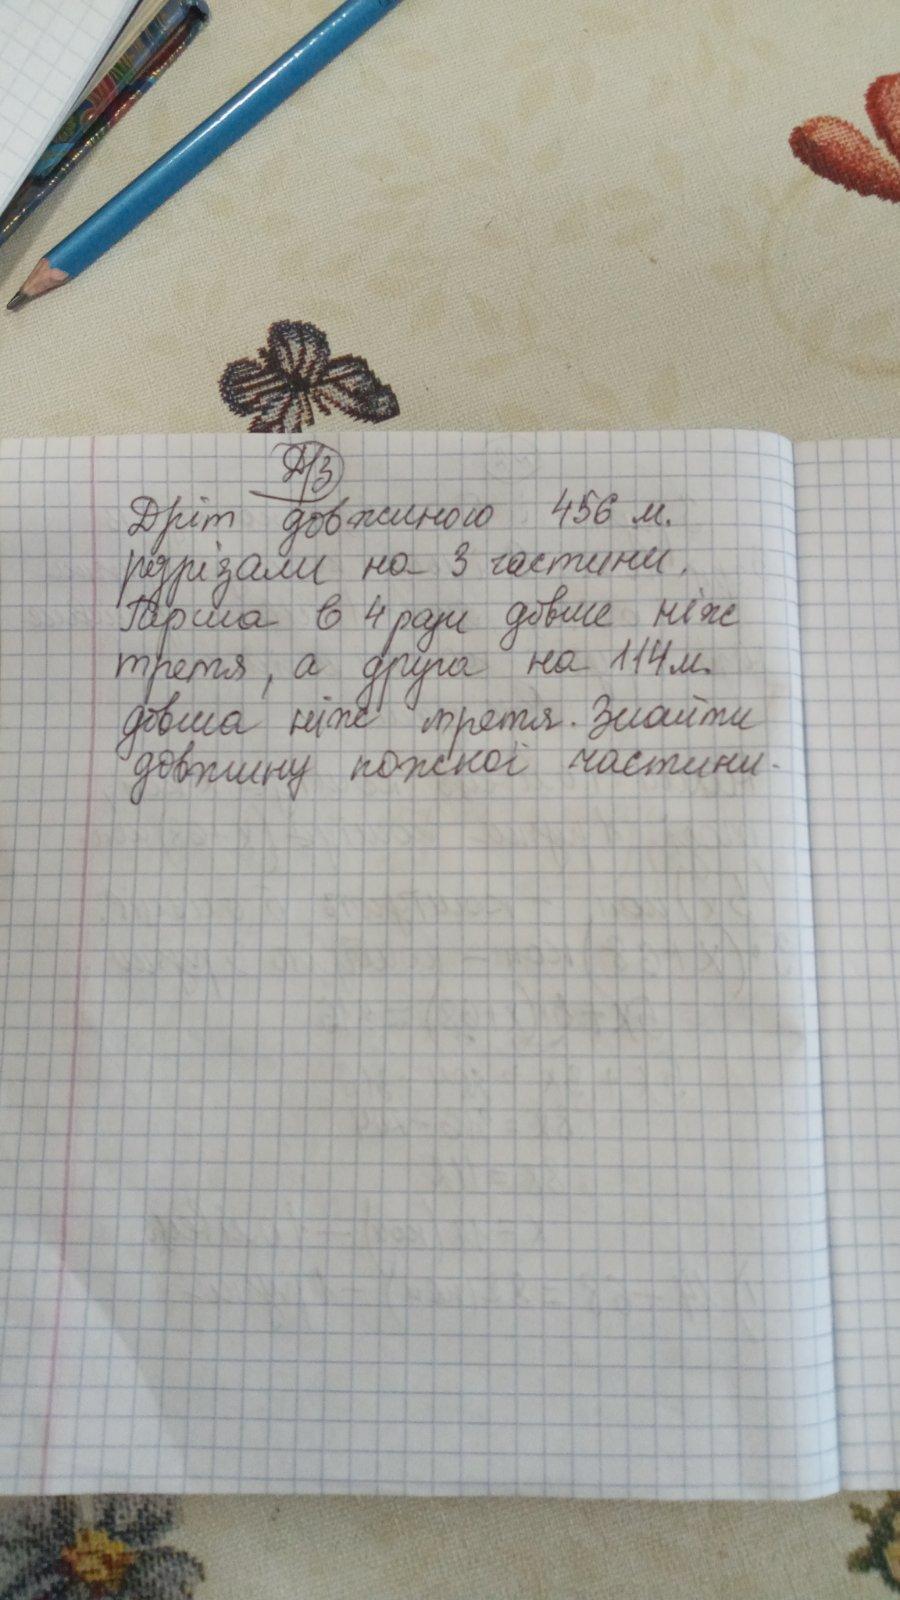 Д/З
Дріт довжиною 456 м.
розрізали на 3 частини.
Перша в 4 рази довше ніж
третя, а друга на 114 м.
довша ніж третя. Знайти
довжину кожної частини.